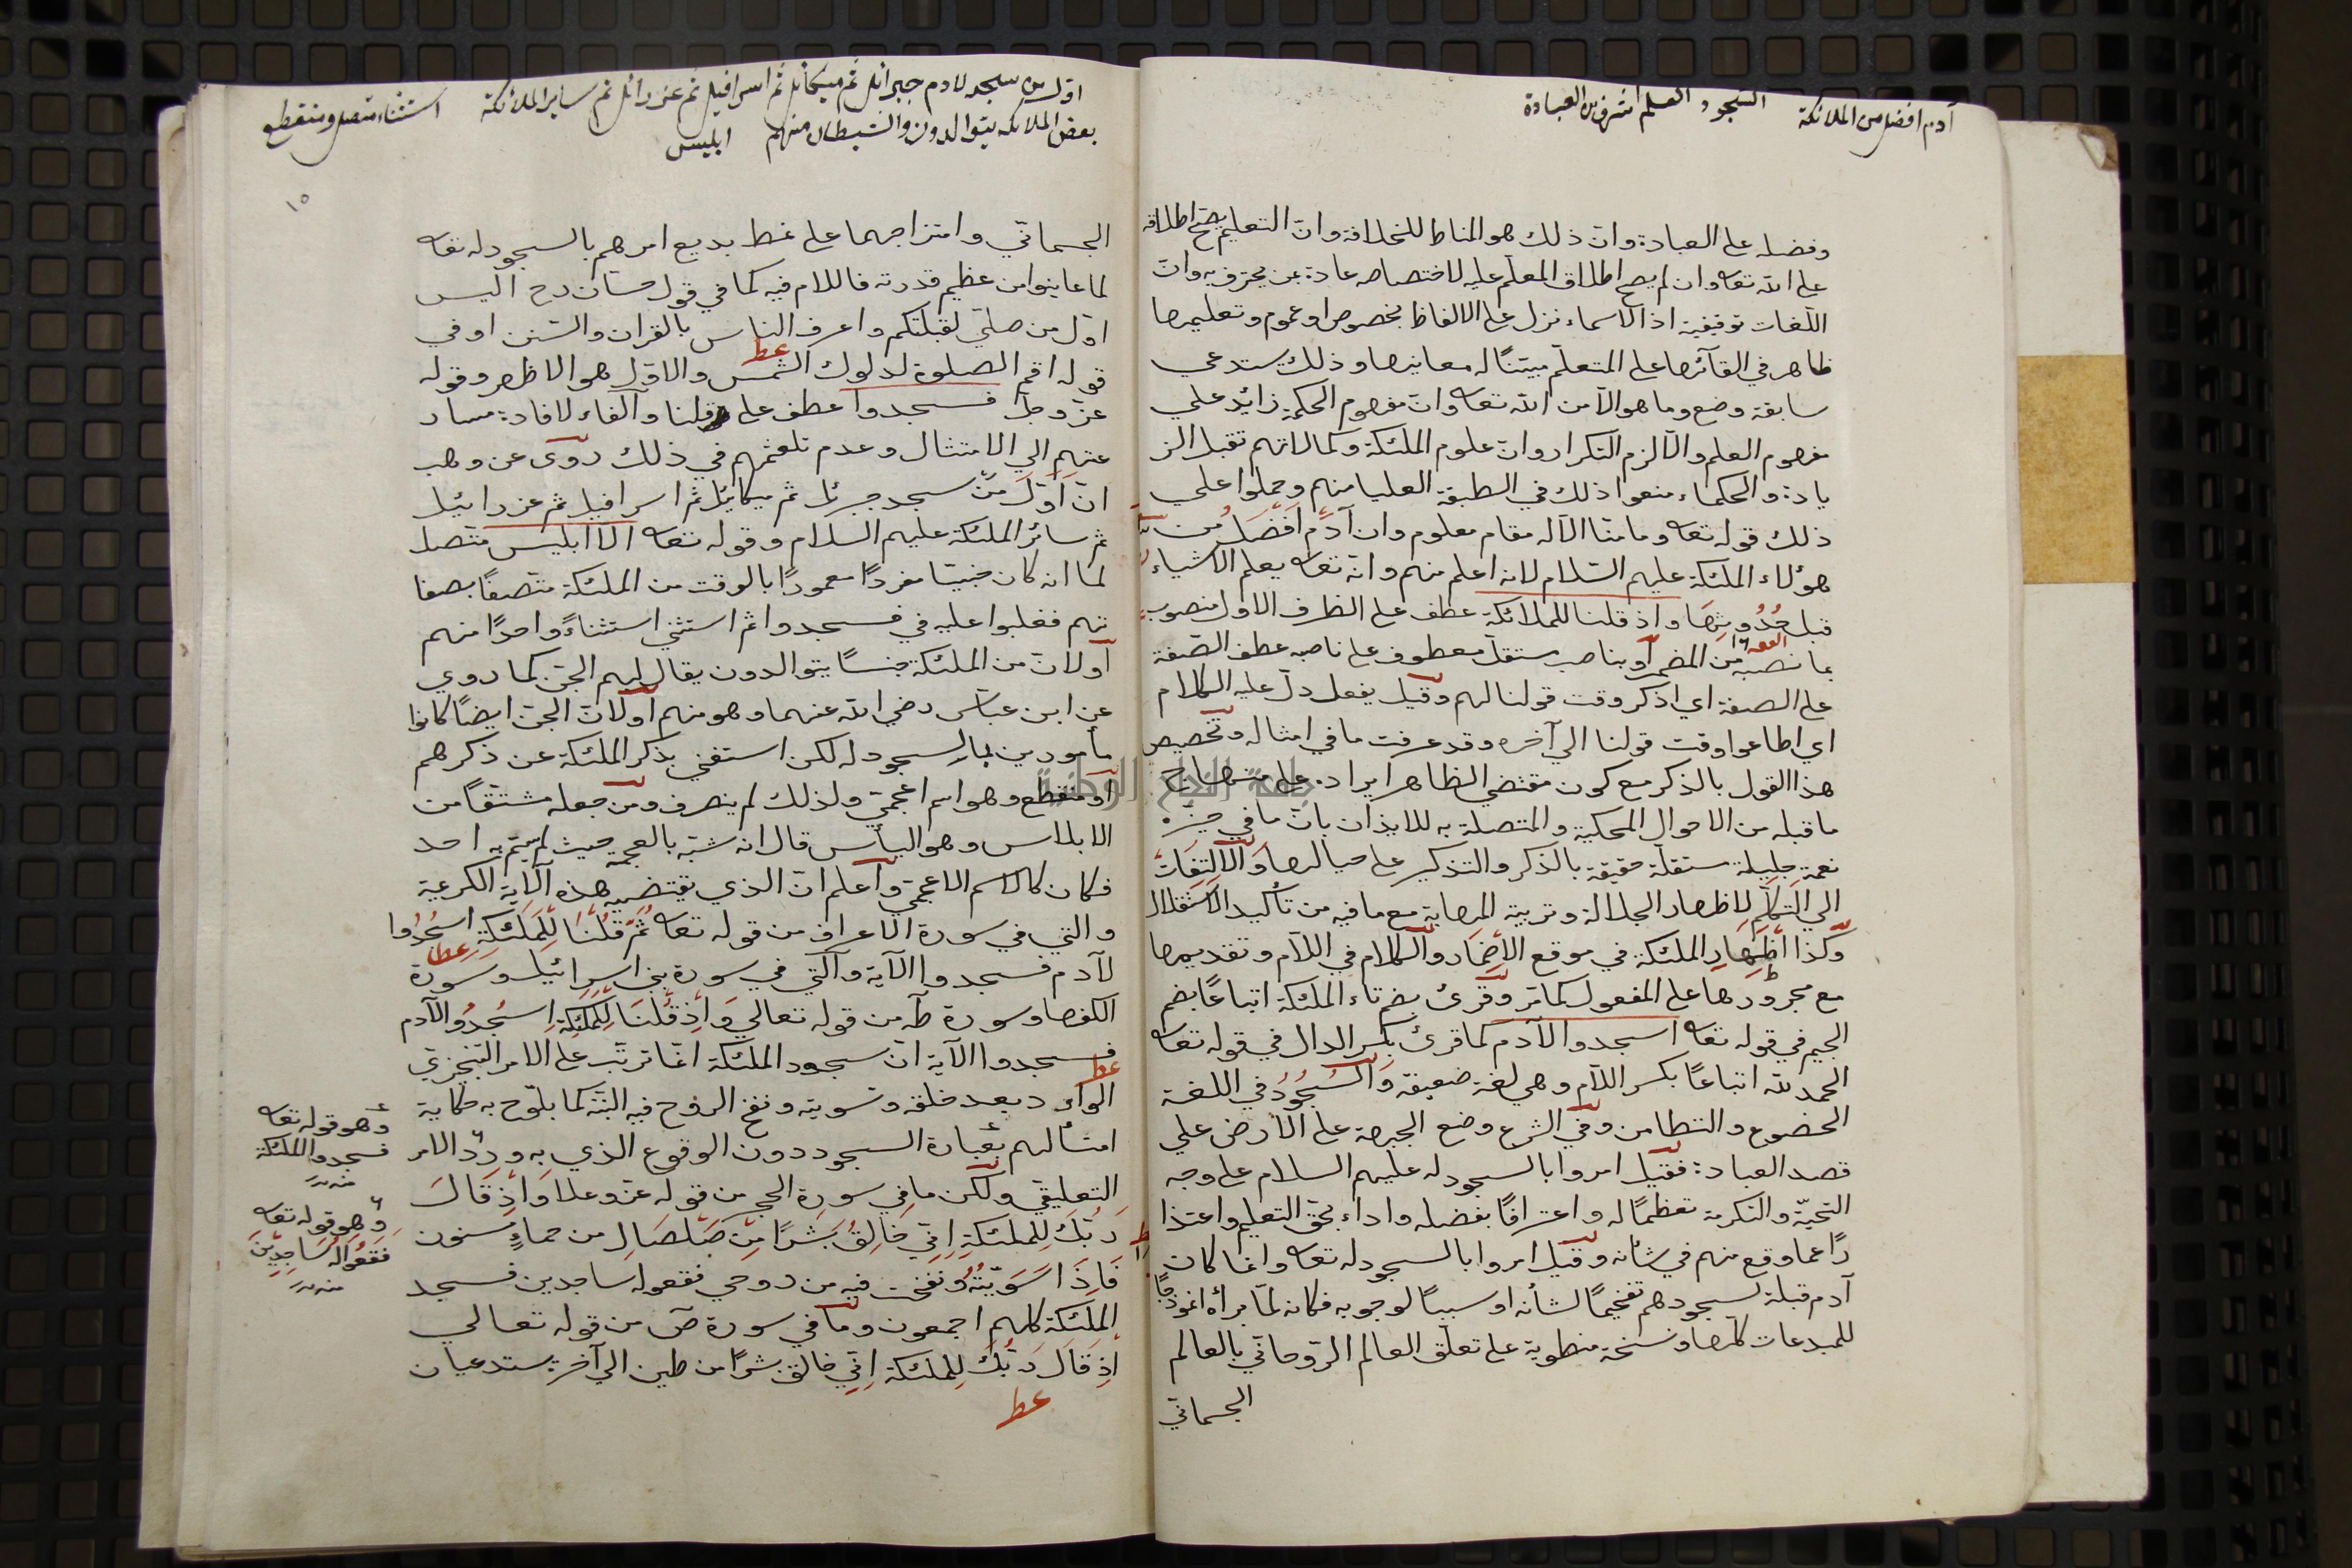 آدم افضل من الملائكة السجود العلم اشرف من العبادة
وفضله على العبادة وان ذلك هو المناط للخلافة وان التعليم يصح اطلاقه
على الله تعا وان لم يصح اطلاق المعلم عليه لاختصاصه عادة بمن يحترف به وان
اللغات توقيفية اذ الاسماء تزل على الالفاظ بخصوص او عموم وتعليمها
ظاهر في القآئها على المتعلم مبيّنًا له معانيها وذلك يستدعي
سابقة وضع وما هو الا من الله تعا وان مفهوم الحكمة زائد علي
مفهوم العلم والا لزم التكرار وان علوم الملئكة وكمالاتهم تقبل الز
يادة والحكماء منعوا ذلك في الطبقة العليا منهم وحملوا علي
ذلك قوله تعا وما منا الا له مقام معلوم وان آدم افضل من
هؤلاء الملئكة عليهم السلام لانه اعلم منهم وانه تعا يعلم الاشياء
قبل حُدُوثِهَا واذ قلنا للملائكة عطف على الظرف الاول منصوب
بما نصبه من المضمر او بناصب مستقل معطوف على ناصبه عطف القصة
على القصة اي اذكر وقت قولنا لهم وقيل بفعل دل عليه الكلام
اي اطاعوا وقت قولنا الي آخره وقد عرفت ما في امثاله وتخصيص
هذا القول بالذكر مع كون مقتضي الظاهر ايراده على منهاج
ما قبله من الاحوال المحكية والمتصلة به للايذان بان ما في حيزه
نعمة جليلة مستقلة حقيقة بالذكر والتذكير على حيالها والالتفات
الي التكلم لاظهار الجلالة وتربية المهابة مع ما فيه من تأكيد الاستقلال
وكذا اظهار الملئكة في موقع الاضمار والكلام في اللام وتقديمها
مع مجرورها على المفعول كما مر وقرئ بضم تاء الملئكة اتباعًا بضم
الجيم في قوله تعا اسجدوا لآدم كما قرئ بكسر الدال في قوله تعا
الحمد لله اتباعًا بكسر اللام وهي لغة ضعيفة والسُّجُودُ في اللغة
الخضوع والتطامن وفي الشرع وضع الجبهة على الارض علي
قصد العبادة فقيل امروا بالسجود له عليهم السلام على وجه
التحيّة والتكرمة تعظيمًا له واعترافًا بفضله واداء بحق التعليم واعتذا
رًا عما وقع منهم في شأنه وقيل امروا بالسجود له تعا وانما كان
آدم قبلة لسجودهم تفخيمًا لشأنه او سببًا لوجوبه فكانه لما برأه انموذجًا
للمبدعات كلها ونسخة منطوية على تعلق العالم الروحاني بالعالم
الجسماني
اول من سجد لادم جبرائل ثم ميكائل ثم اسرافيل ثم عزرائل ثم ساير الملائكة استثناء متصل ومنقطع
بعض الملائكه يتوالدون والشيطان منهم ابليس
١٥
الجسماني وامتزاجهما على نمط بديع امرهم بالسجود له تعا
لما عاينوا من عظيم قدرته فاللام فيه كما في قول حسان رح اليس
اول من صلي لقبلتكم واعرف الناس بالقران والسنن او في
قوله اقم الصلوة لدلوك الشمس والاول هو الاظهر وقوله
عط
عز وجل فسجدوا عطف على قلنا والفاء لافادة مسار
عتهم الي الامتثال وعدم تلعثمهم في ذلك روى عن وهب
ان اول من سجد جبرئل ثم ميكائل ثم اسرافيل ثم عزرائيل
ثم سائر الملئكة عليهم السلام وقوله تعا الا ابليس متصل
لما انه كان جنيا مفردًا مغمورًا بالوقت من الملئكة متصفًا بصفا
تهم فغلبوا عليه في فسجدوا ثم استثني استثناءً واحدًا منهم
او لان من الملئكة جنسًا يتوالدون يقال لهم الجن كما روي
عن ابن عباس رضي الله عنهما وهو منهم او لان الجن ايضًا كانوا
مأمورين بالسجود له لكن استغني بذكر الملئكة عن ذكرهم
او منقطع وهو اسم اعجمي ولذلك لم ينصرف ومن جعله مشتقًا من
الابلاس وهو اليأس قال انه شبّه بالعجمة حيث لم يسم به احد
فكان كالاسم الاعجمي واعلم ان الذي يقتضيه هذه الآية الكريمة
والتي في سورة الاعراف من قوله تعا ثُمَّ قُلْنَا لِلْمَلئكَةِ اسْجُدُوا
لآدم فسجدوا الآية والتي في سورة بني اسرائيل وسورة
عط
الكهف وسورة طه من قوله تعالي وَاِذْ قُلْنَا لِلْمَلئكَةِ اسْجُدُوا لآدم
فسجدوا الآية ان سجود الملئكة انما ترتب على الامر التنجيزي
عط
الوارد بعد خلقه وتسويته ونفخ الروح فيه البتة كما يلوّح به حكاية
امتثالهم بعبارة السجود دون الوقوع الذي به ورد الامر
التعليقي ولكن ما في سورة الحجر من قوله عز وعلا وَاِذْ قَالَ
رَبُّكَ لِلْمَلئكَةِ اِنِّي خَالِقٌ بَشَرًا مِنْ صَلْصَالٍ من حماءٍ مسنون
فَاِذَا سَوَّيْتُهُ ونفخت فيه من روحي فقعوا له ساجدين فسجد
الملئكة كلهم اجمعون وما في سورة ص من قوله تعالي
اِذْ قَالَ رَبُّكَ لِلْمَلئكَة اِنِّي خالق بشرًا من طين الي آخره يستدعيان
عط
وهو قوله تعا
فسجدوا الملئكة
منه
وهو قوله تعا
فَقَعُوا لَهُ سَاجِدِينَ
منه
جامعة النجاح الوطنية